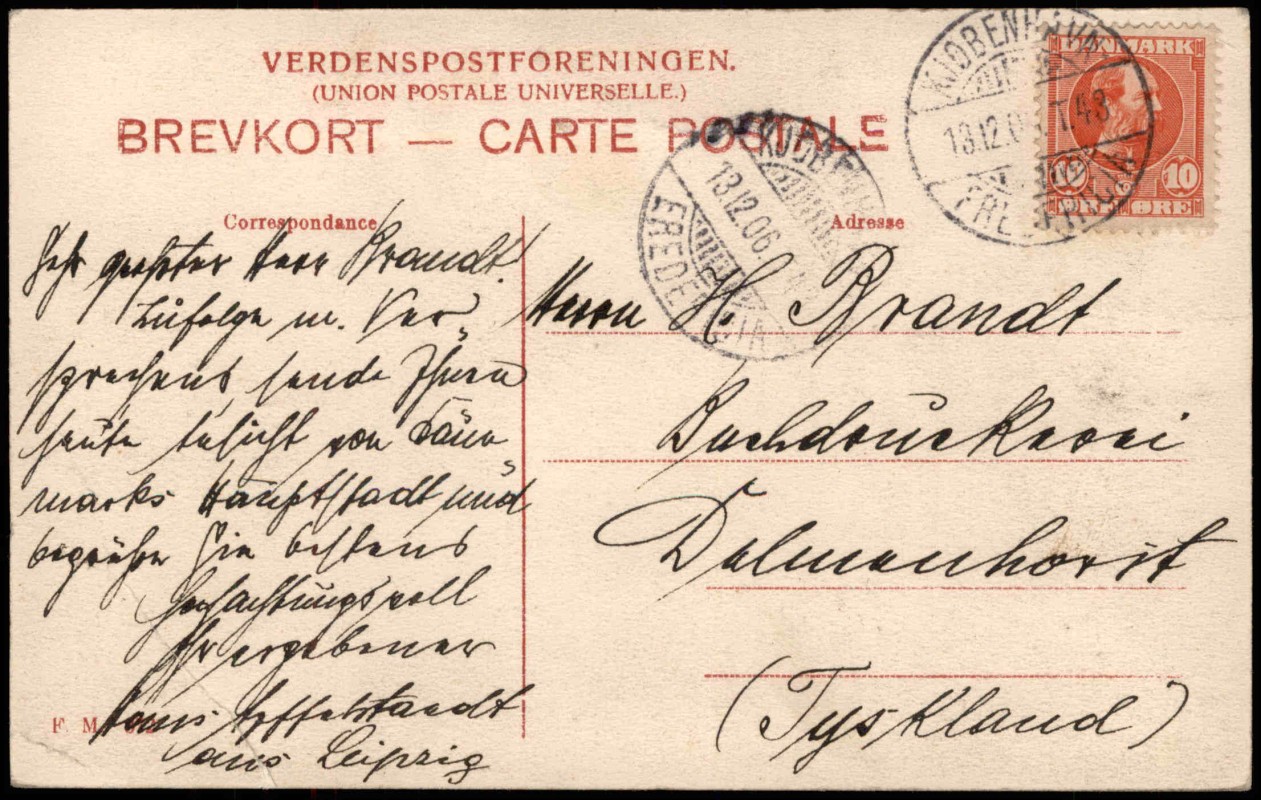 VERDENSPOSTFORENINGEN.
(UNION POSTALE UNIVERSELLE.)
BREVKORT — CARTE POSTALE
Correspondance
Sehr geehrter Herr Brandt.
Zufolge m. Ver-
sprechens sende Ihnen
heute Ansicht von Däne-
marks Hauptstadt und
begrüße Sie bestens
Hochachtungsvoll
Ihr ergebener
Hans
aus Leipzig
F. M.
Adresse
Herrn H. Brandt
Buchdruckerei
Delmenhorst
(Tyskland)
KJØBENHAVN
13.12.06
FREDERICIA
KJØBENHAVN
13.12.0 T.43
FREDERICIA
DANMARK
10 10
ØRE ØRE